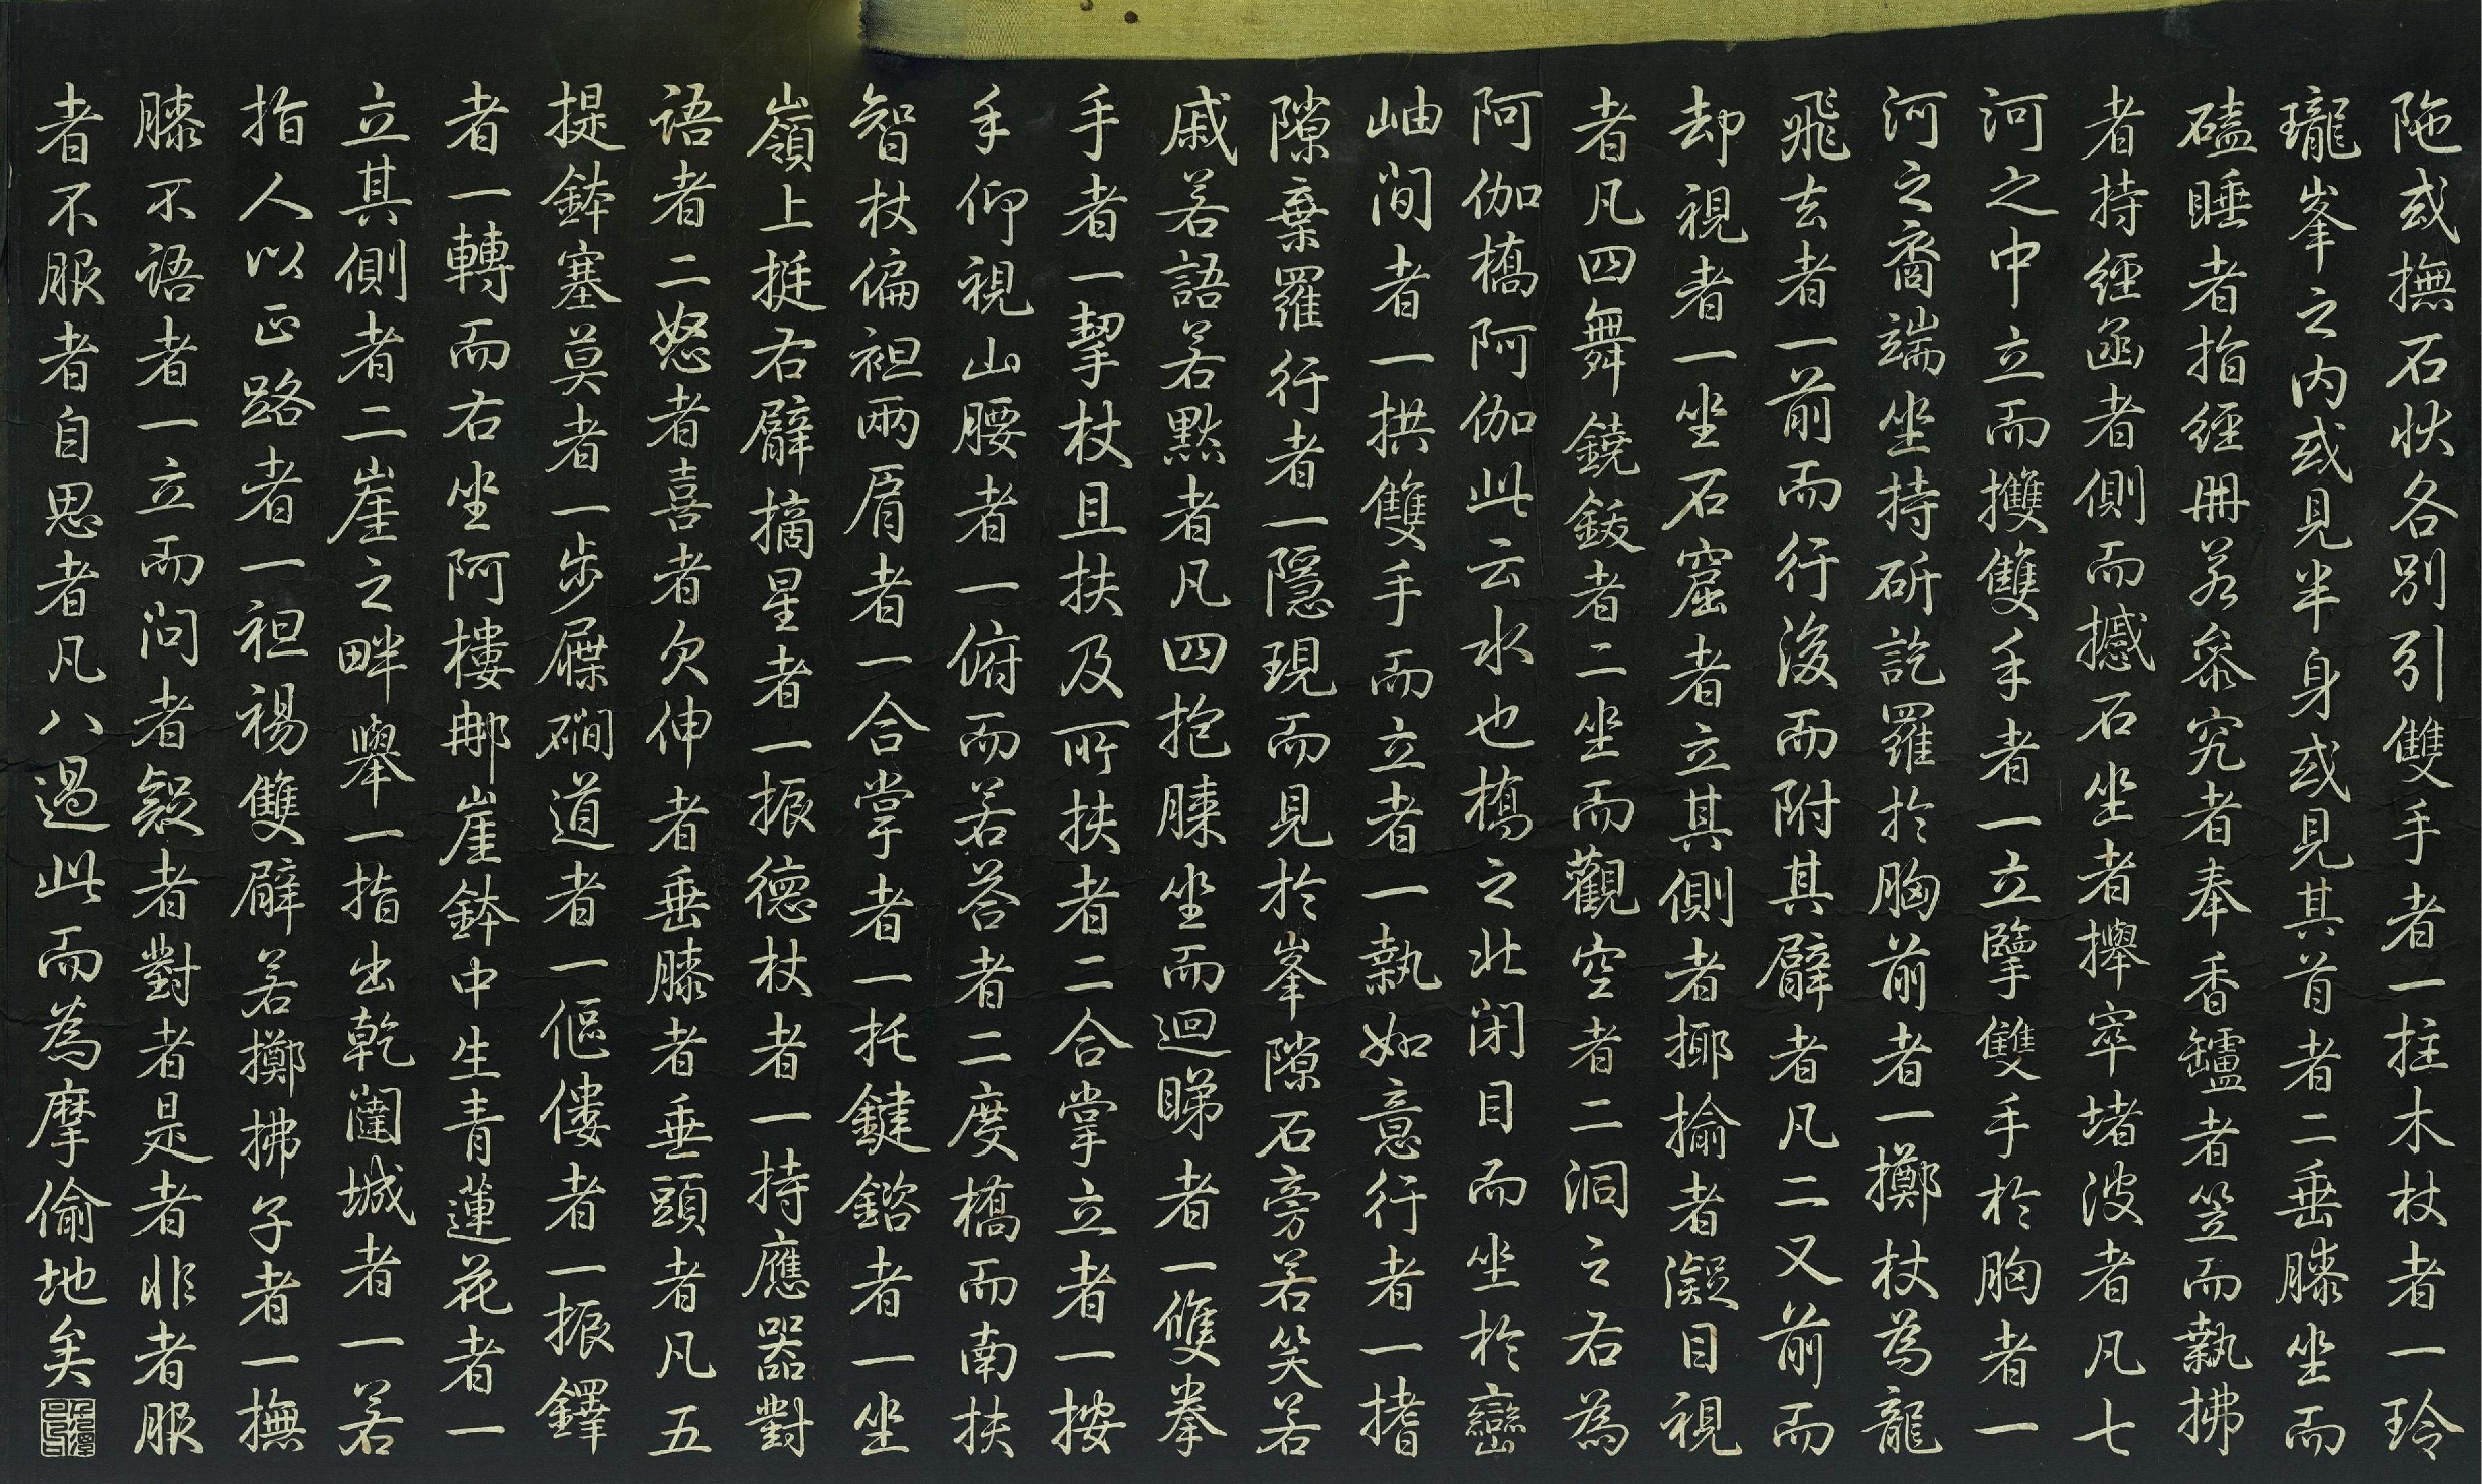 陁或撫石狀各別引雙手者一拄木杖者一玲
瓏峯之內或見半身或見其首者二垂膝坐而
磕睡者指經冊若叅究者奉香鑪者笠而執拂
者持經函者側而撼石坐者擧窣堵波者凡七
河之中立而攫雙手者一立擥雙手於胸者一
河之裔端坐持斫訖羅於胸前者一擲杖為龍
飛去者一前而行後而附其臂者凡二又前而
却視者一坐石窟者立其側者揶揄者凝目視
者凡四舞鐃鈸者二坐而觀空者二洞之右為
阿伽橋阿伽此云水也橋之北閉目而坐於巒
岫間者一拱雙手而立者一執如意行者一搘
隙棄羅行者一隱現而見於峯隙石旁若笑若
戚若語若黙者凡四抱膝坐而迴睇者一雙拳
手者一挈杖且扶及所扶者二合掌立者一按
手仰視山腰者一俯而若荅者二度橋而南扶
智杖偏袒兩肩者一合掌者一托鍵鎔者一坐
嶺上挺右臂摘星者一振德杖者一持應器對
語者二怒者喜者欠伸者垂膝者垂頭者凡五
提鉢塞莫者一步屧磵道者一傴僂者一振鐸
者一轉而右坐阿樓那崖鉢中生青蓮花者一
立其側者二崖之畔擧一指出乾闥城者一若
指人以正路者一袒裼雙臂若擲拂子者一撫
膝不語者一立而问者疑者對者是者非者服
者不服者自思者凡八過此而為摩偷地矣